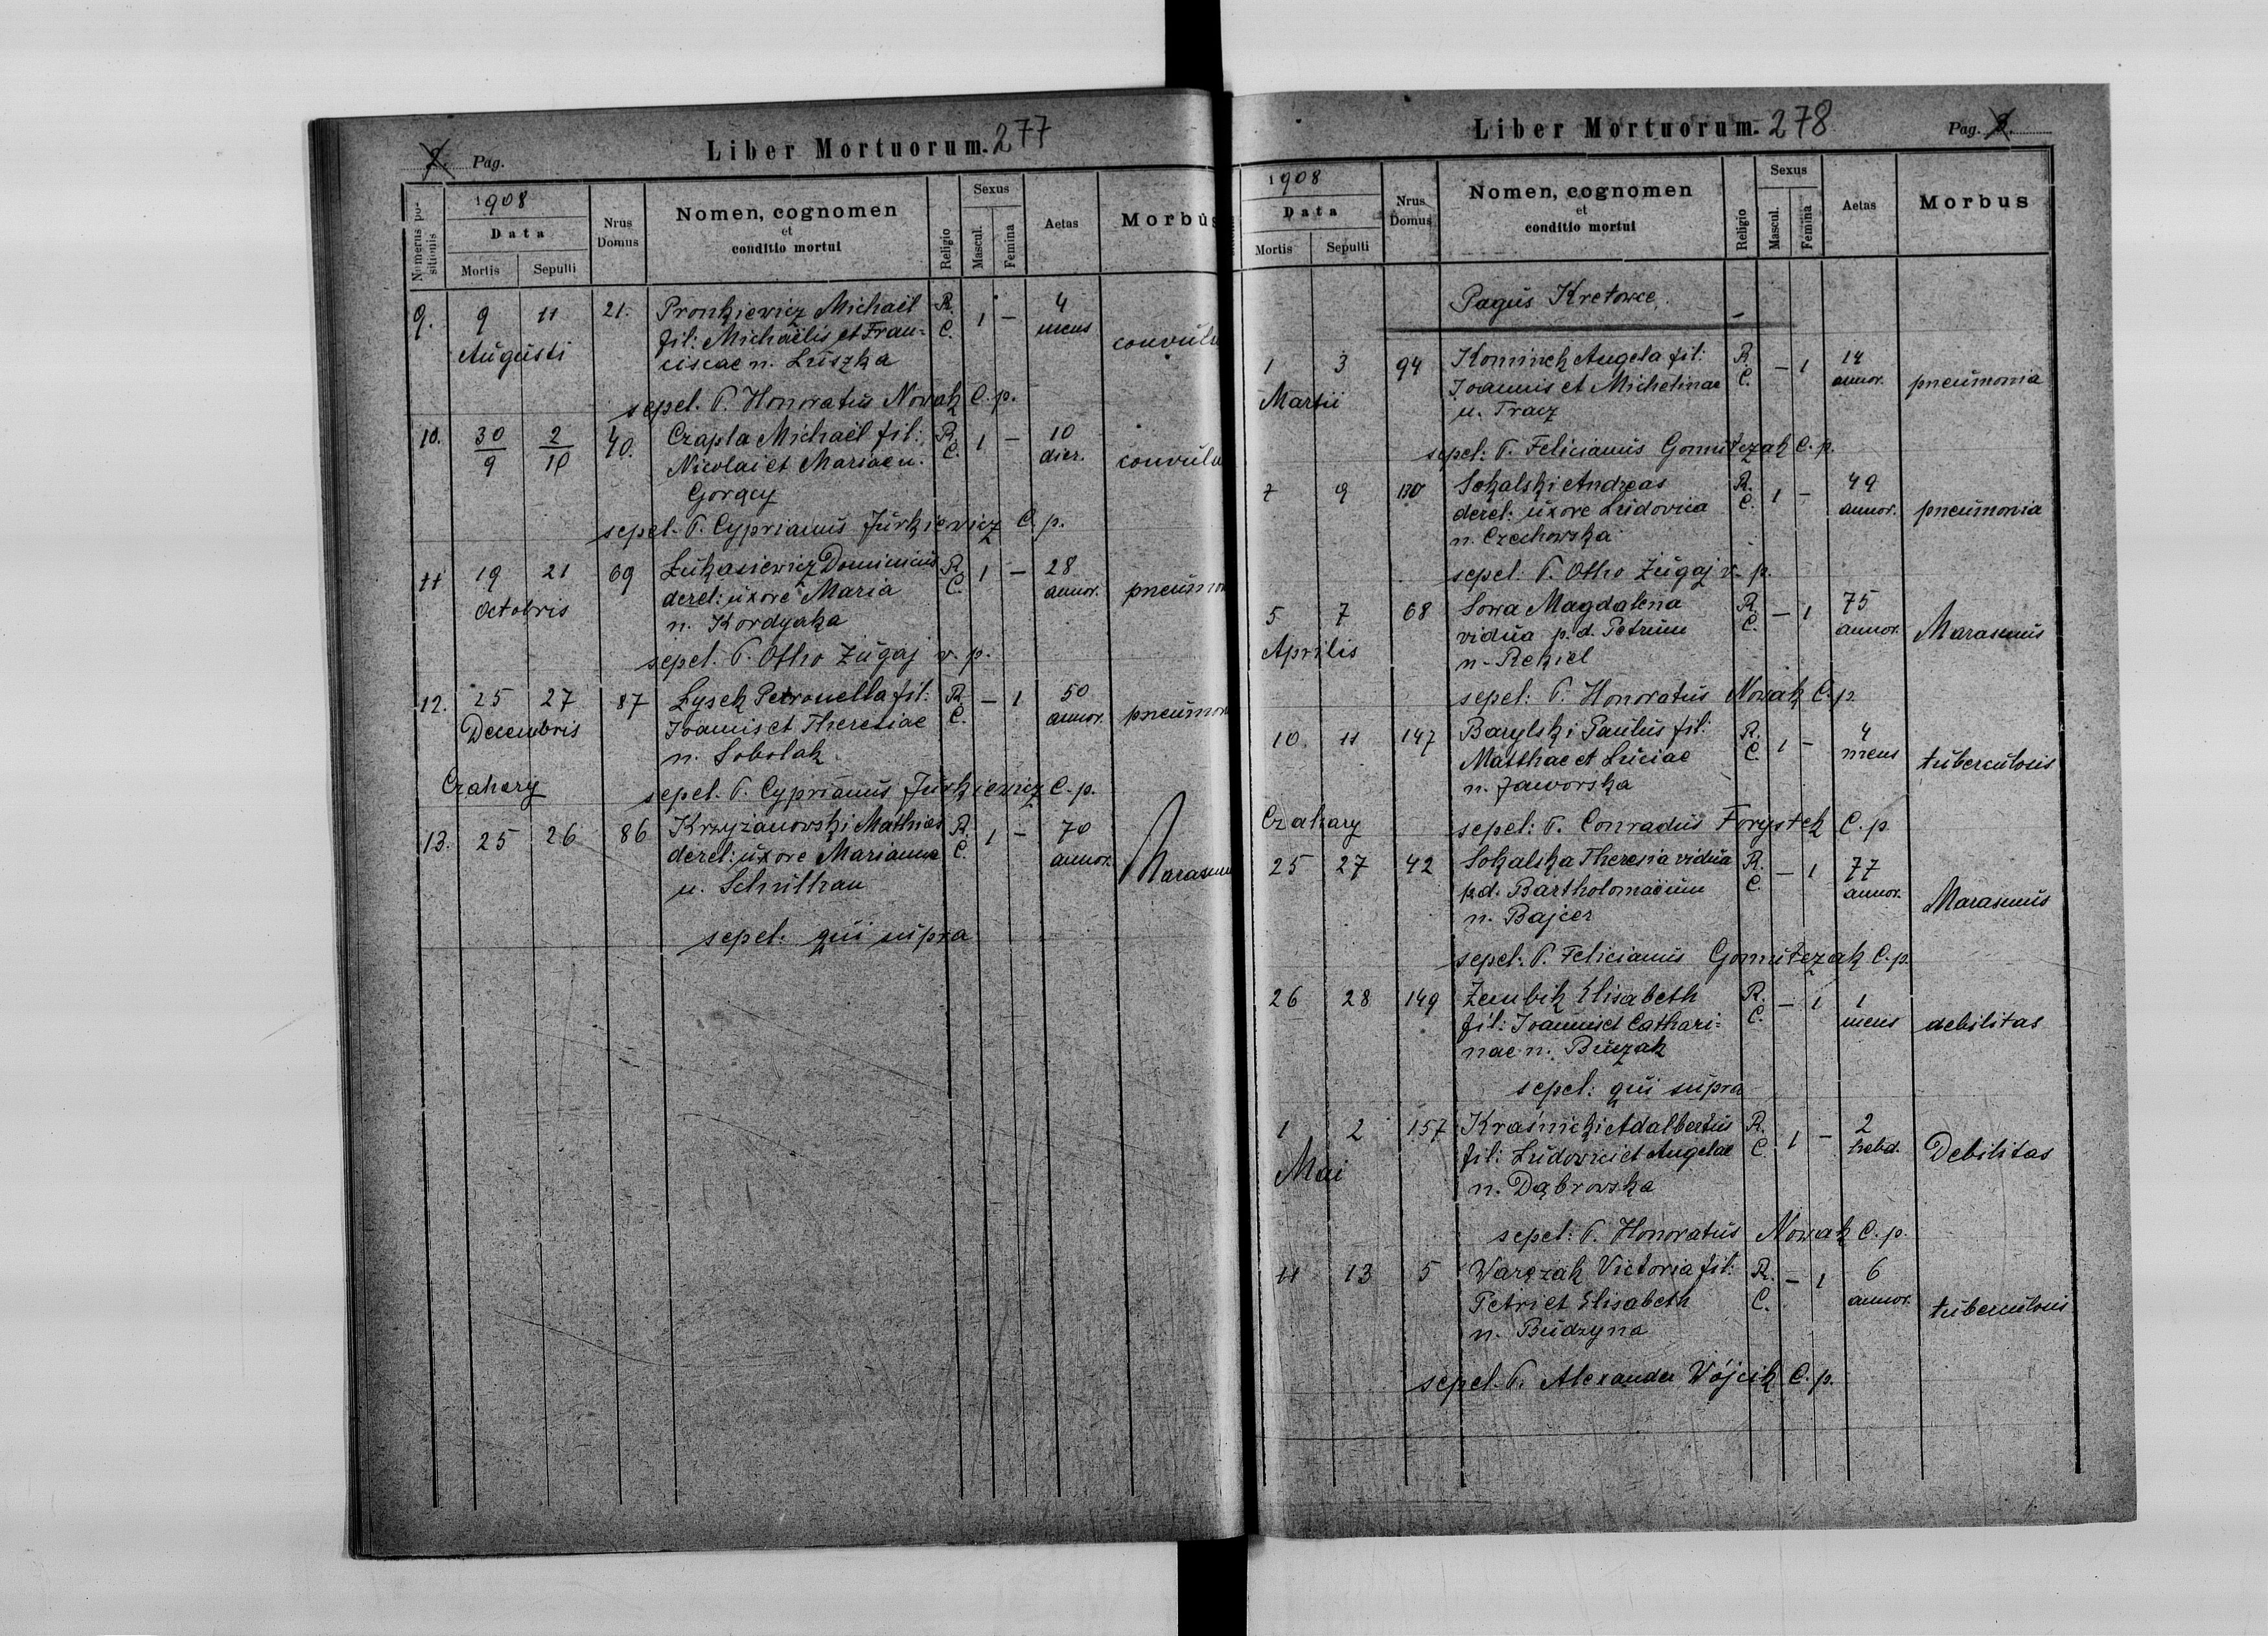 7. Pag.
Liber Mortuorum. 277
Numerus positionis
1908
Data
Mortis Sepulti
Nrus Domus
Nomen, cognomen
et
conditio mortui
Religio
Sexus
Mascul. Femina
Aetas
Morbus
9. 9 11 21. Pronkiewicz Michaël R. 1 – 4
Augusti fil: Michaëlis et Fran= C. mens convuls
ciscae n. Luszka
sepel. P. Honoratus Nowak C. p.
10. 30/9 2/10 40. Czapla Michaël fil: R. 1 – 10
Nicolai et Mariae n. C. dier. convuls
Gorący
sepel. P. Cyprianus Jurkiewicz C. p.
11 19 21 69 Łukasiewicz Dominicus R. 1 – 28
Octobris derel: uxore Maria C. annor. pneumon
n. Kordyaka
sepel. P. Otho Zugaj v. p.
12. 25 27 87 Łysek Petronella fil: R. – 1 50
Decembris Joannis et Theresiae C. annor. pneumon
n. Sobolak
Czahary sepel. P. Cyprianus Jurkiewicz C. p.
13. 25 26 86 Krzyżanowski Mathias R. 1 – 70
derel: uxore Marianna C. annor. Marasmu
n. Schulhan
sepel: qui supra
Liber Mortuorum. 278
Pag. 8.
1908
Data
Mortis Sepulti
Nrus Domus
Nomen, cognomen
et
conditio mortui
Religio
Sexus
Mascul. Femina
Aetas
Morbus
Pagus Kretowce.
1 3 94 Kominek Angela fil: R. – 1 14
Martii Joannis et Michelinae C. annor. pneumonia
n. Tracz
sepel: P. Felicianus Gomułczak C. p.
7 9 130 Sokalski Andreas R. 1 – 49
derel: uxore Ludovica C. annor. pneumonia
n. Czechowska
sepel: P. Otho Zugaj v. p.
5 7 68 Sowa Magdalena R. – 1 75
Aprilis vidua p. d. Petrum C. annor. Marasmus
n. Rekiel
sepel: P. Honoratus Nowak C. p.
10 11 147 Barylski Paulus fil: R. 1 – 4
Matthae et Luciae C. mens tuberculosis
n. Jaworska
Czahary sepel: P. Conradus Forystek C. p.
25 27 42 Sokalska Theresia vidua R. – 1 77
p. d. Bartholomaeum C. annor. Marasmus
n. Bajcer
sepel: P. Felicianus Gomułczak C. p.
26 28 149 Zembik Elisabeth R. – 1 1
fil: Joannis et Cathari= C. mens debilitas
nae n. Buczak
sepel: qui supra
1 2 157 Kraśnicki Adalbertus R. 1 – 2
Mai fil: Ludovici et Angelae C. hebd. Debilitas
n. Dąbrowska
sepel: P. Honoratus Nowak C. p.
11 13 5 Warczak Victoria fil: R. – 1 6
Petri et Elisabeth C. annor. tuberculosis
n. Budzyna
sepel. P. Alexander Wójcik C. p.